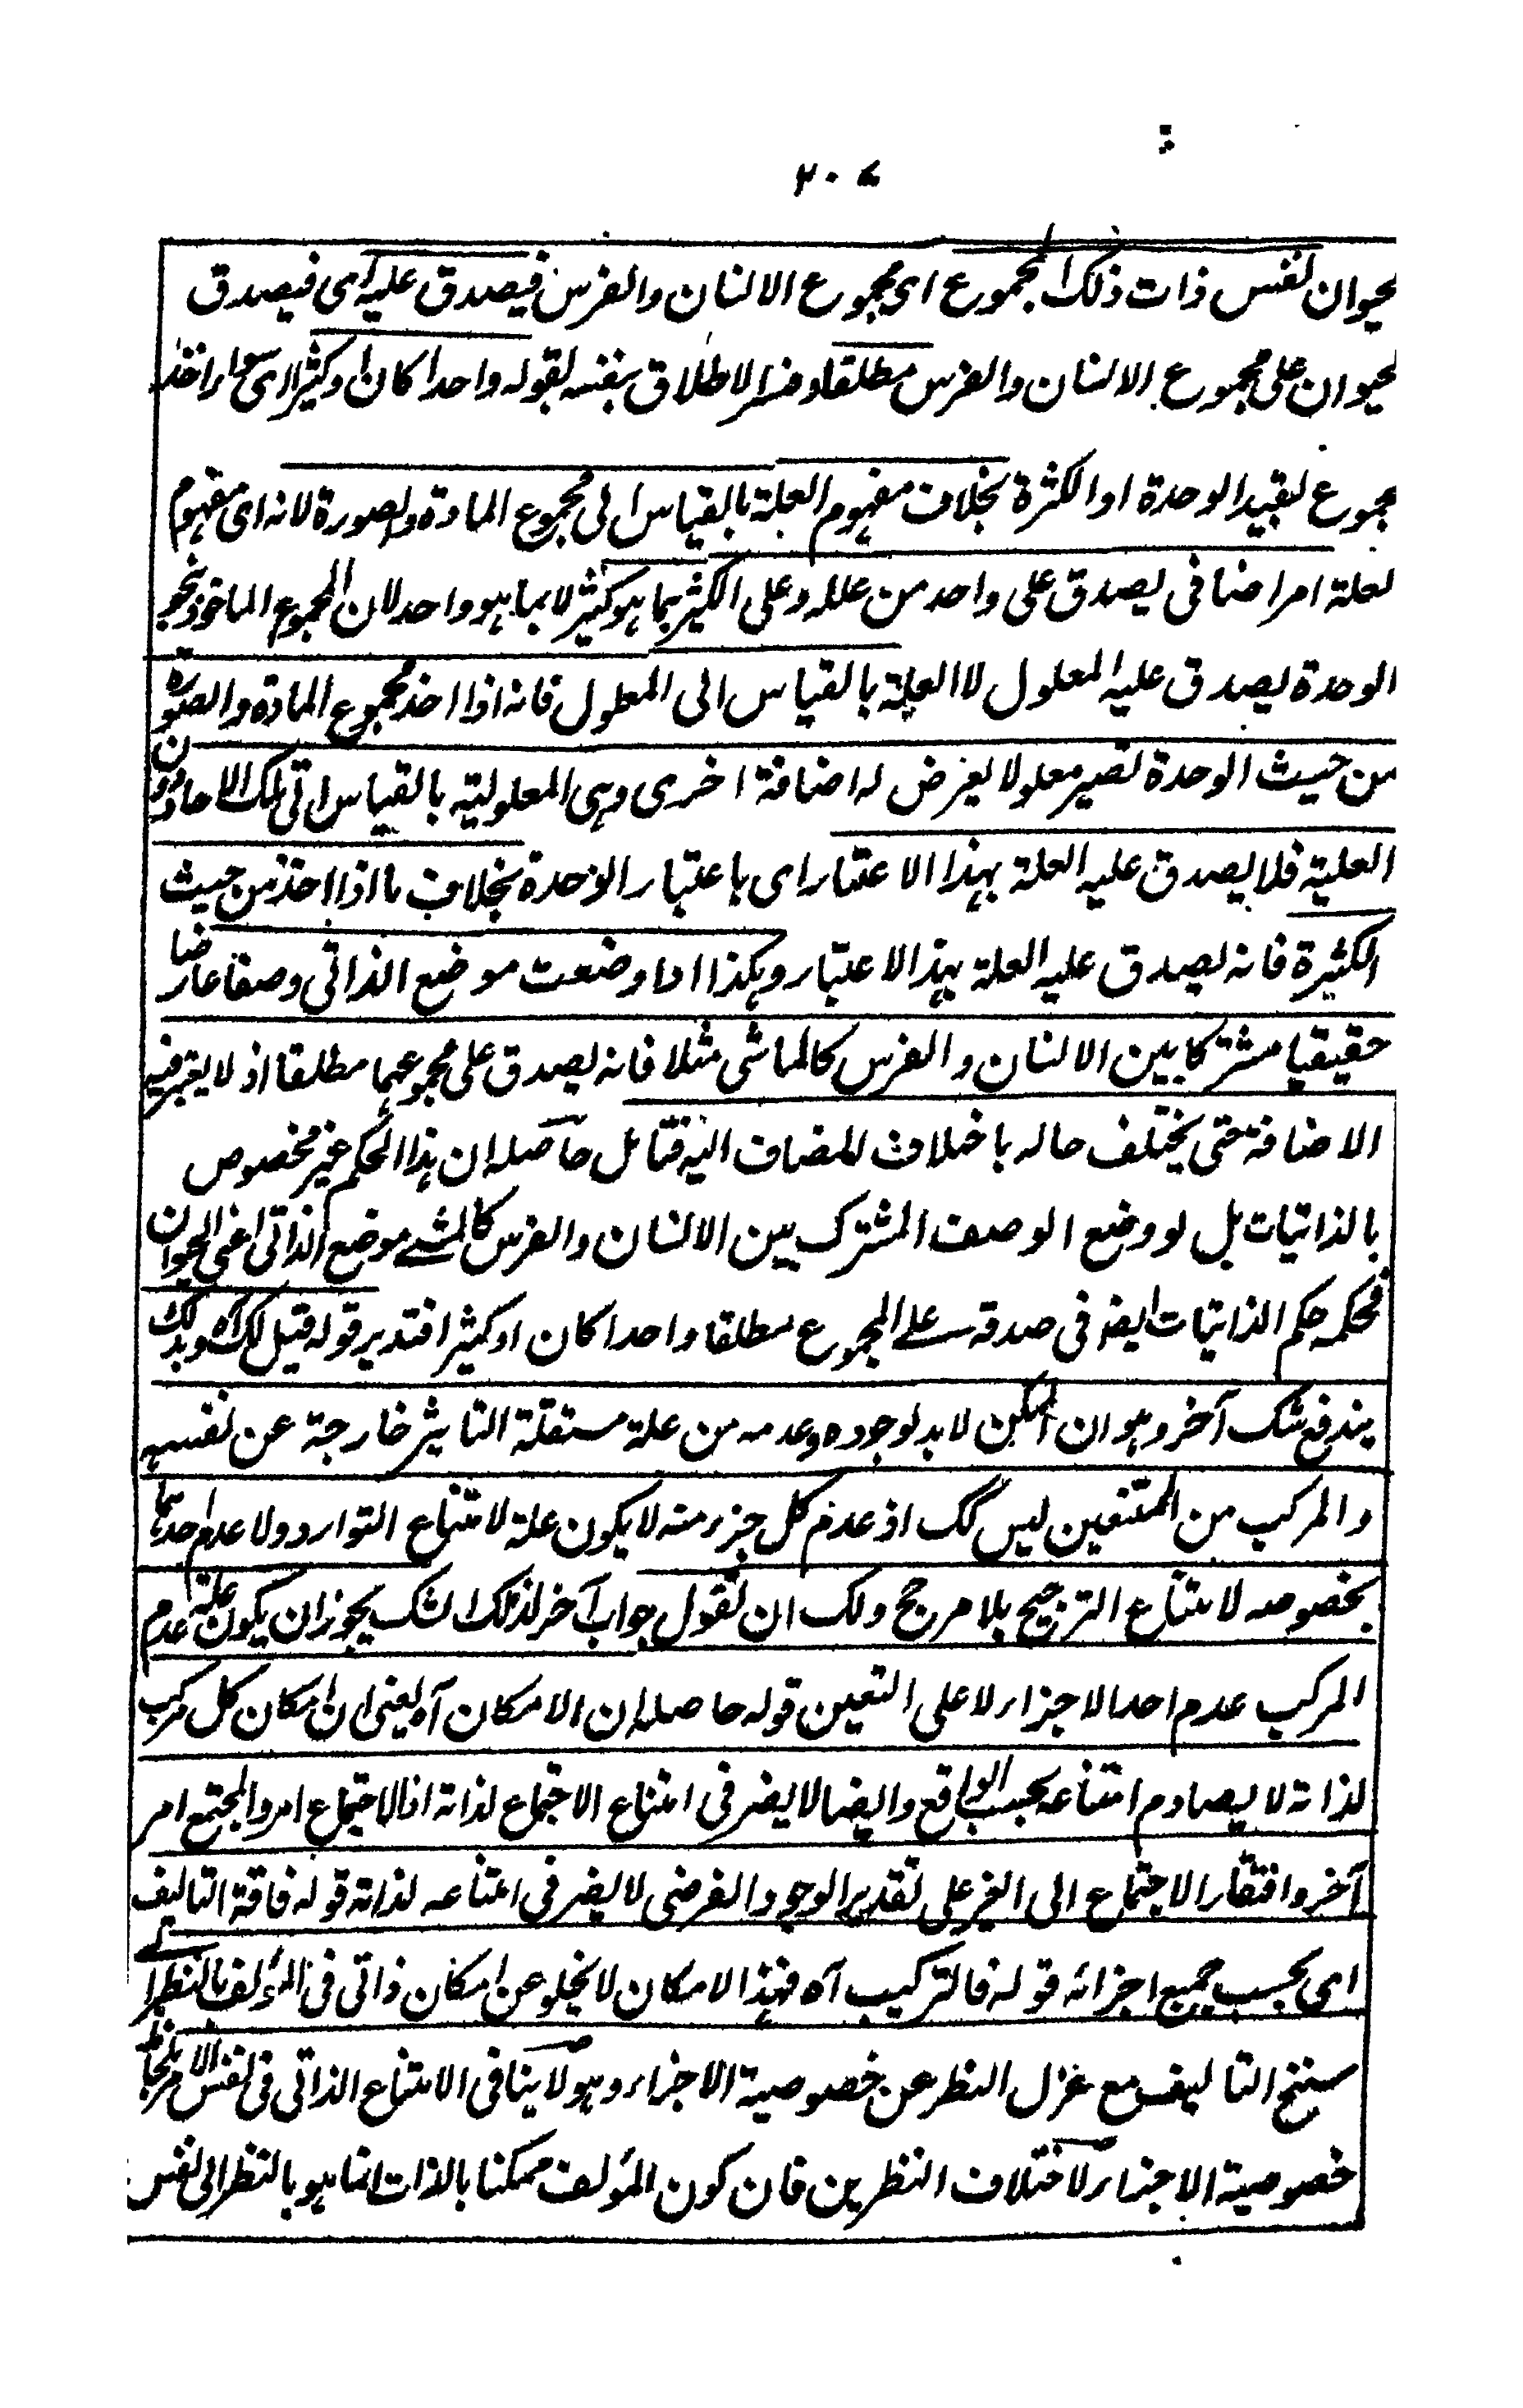 ٢٠٧
لحيوان نفس ذات ذلك المجموع اى مجموع الانسان والفرس فيصدق عليه اى فيصدق
لحيوان على مجموع الانسان والفرس مطلقا وفسر الاطلاق بنفسه لقوله واحدا كان او كثيرا اى سواء اخذ
مجموع بقيد الوحدة او الكثرة بخلاف مفهوم العلة بالقياس الى مجموع المادة والصورة لانه اى مفهوم
لعلة امر اضافى يصدق على واحد من علله وعلى الكثير بما هو كثير لا بما هو واحد لان المجموع الماخوذ بنحو
الوحدة يصدق عليه المعلول لا العلية بالقياس الى المعلول فانه اذا اخذ مجموع المادة والصورة
من حيث الوحدة تصير معلولا يعرض له اضافة اخرى وهى المعلولية بالقياس الى تلك الاحاد دون
العلية فلا يصدق عليه العلة بهذا الاعتبار اى باعتبار الوحدة بخلاف ما اذا اخذ من حيث
الكثيرة فانه يصدق عليه العلة بهذا الاعتبار وهكذا اذا وضعت موضع الذاتى وصفا عارضا
حقيقيا مشتركا بين الانسان والفرس كالماشى مثلا فانه يصدق على مجموعهما مطلقا اذ لا يعتبر فيه
الاضافة حتى يختلف حاله باختلاف المضاف اليه فتامل حاصله ان هذا الحكم غير مخصوص
بالذاتيات بل لو وضع الوصف المشترك بين الانسان والفرس كالمشے موضع الذاتى اعنى الحيوان
فحكمه حكم الذاتيات ايضا فى صدقه علے المجموع مطلقا واحدا كان او كثيرا فتدبر قوله قيل لك آه وبذلك
يندفع شك آخر وهو ان الممكن لا بد لوجوده وعدمه من علة مستقلة التاثير خارجة عن نفسه
والمركب من الممتنعين ليس كك اذ عدم كل جزء منه لا يكون علة لامتناع التوارد ولا عدم احدهما
بخصوصه لامتناع الترجيح بلا مرجح ولك ان تقول جواب آخر لذلك الشك يجوز ان يكون علة عدم
المركب عدم احد الاجزاء لا على التعين قوله حاصله ان الامكان آه يعنى ان امكان كل مركب
لذاته لا يصادم امتناعه بحسب الواقع وايضا لا يضر فى امتناع الاجتماع لذاته اذ الاجتماع امر والمجتمع امر
آخر وافتقار الاجتماع الى الغير على تقدير الوجود الفرضى لا يضر فى امتناعه لذاته قوله فاقة التاليف
اى بحسب جميع اجزائه قوله فالتركيب آه فهذا الامكان لا يخلو عن امكان ذاتى فى المؤلف بالنظر الے
سنخ التاليف مع عزل النظر عن خصوصية الاجزاء وهو لا ينافى الامتناع الذاتى فى نفس الامر بلحاظ
خصوصية الاجزاء لاختلاف النظرين فان كون المؤلف ممكنا بالذات انما هو بالنظر الى نفس